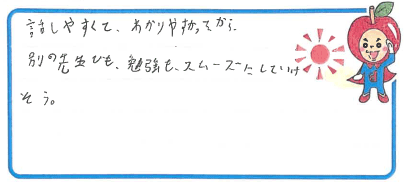 話しやすくて、あかりやすかってから
別の先生でも、勉強も、スムーズにしていけ
そう。